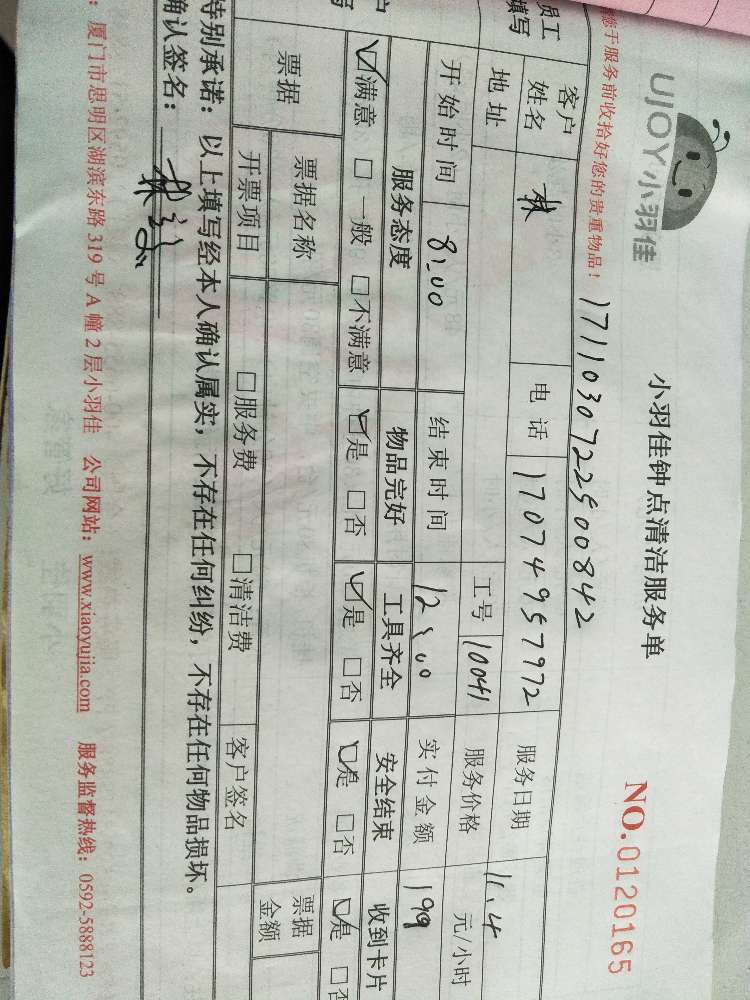 UJOY小羽佳
小羽佳钟点清洁服务单
NO.0120165
您于服务前收拾好您的贵重物品！
1711030722500842
客户姓名 林 电话 17074957972 服务日期 11.4
地址 工号 10041 服务价格 元/小时
员工填写
开始时间 8:00 结束时间 12:00 实付金额 199
服务态度 物品完好 工具齐全 安全结束 收到卡片
☑满意 □一般 □不满意 ☑是 □否 ☑是 □否 ☑是 □否 ☑是 □否
票据 票据名称 票据金额
开票项目 □服务费 □清洁费 客户签名
特别承诺：以上填写经本人确认属实，不存在任何纠纷，不存在任何物品损坏。
确认签名：
：厦门市思明区湖滨东路319号A幢2层小羽佳 公司网站：www.xiaoyujia.com 服务监督热线：0592-5888123